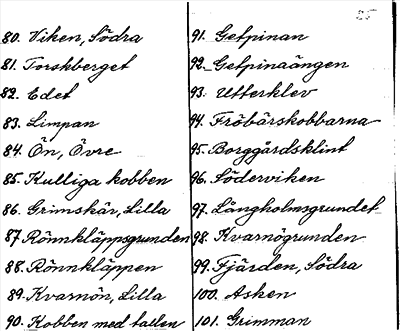 80. Viken, Södra
81. Torskberget
82. Edet
83. Limpan
84. Ön, Övre
85. Kulliga kobben
86. Grimskär, Lilla
87. Rönnkläppsgrunden
88. Rönnkläppen
89. Kvarnön, Lilla
90. Kobben med tallen
91. Getpinan
92. Getpinaängen
93. Utterklev
94. Fröbärskobbarna
95. Borggårdsklint
96. Söderviken
97. Långholmsgrundet
98. Kvarnögrunden
99. Fjärden, Södra
100. Asken
101. Grimman